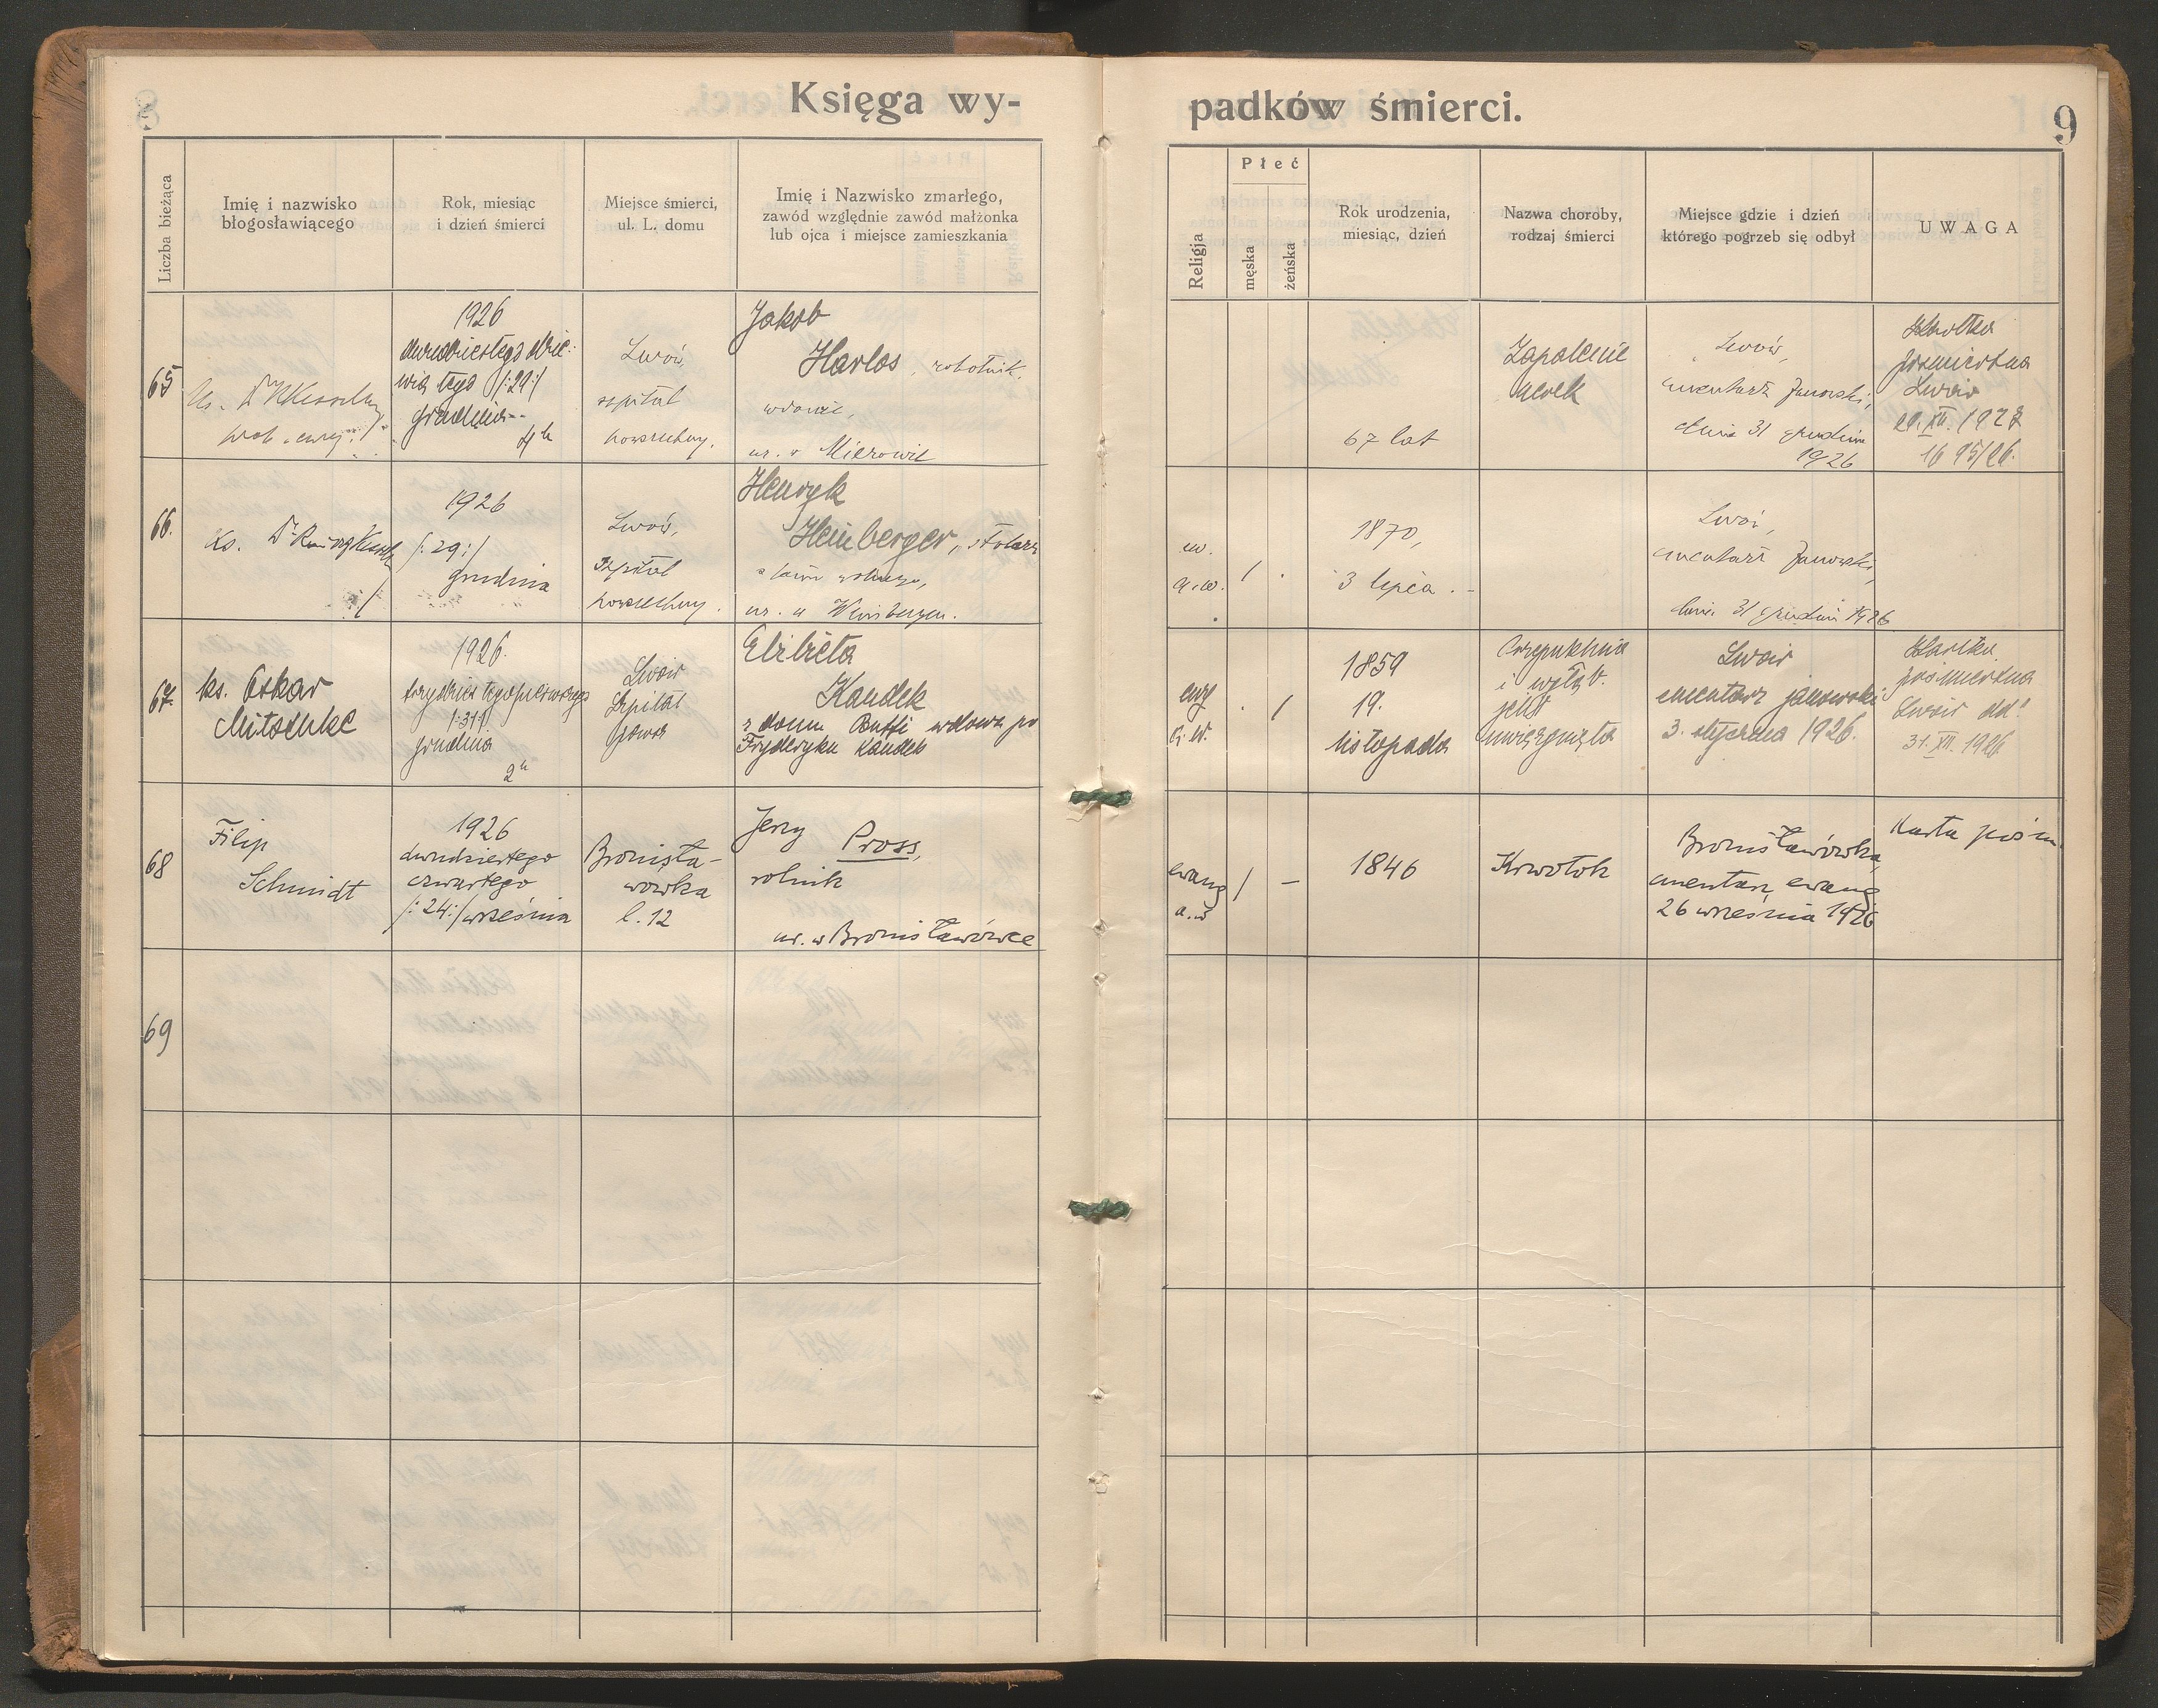 Księga wy-
padków śmierci.
9
Liczba bieżąca
Imię i nazwisko
błogosławiącego
Rok, miesiąc
i dzień śmierci
Miejsce śmierci,
ul. L. domu
Imię i Nazwisko zmarłego,
zawód względnie zawód małżonka
lub ojca i miejsce zamieszkania
Religja
Płeć
męska
żeńska
Rok urodzenia,
miesiąc, dzień
Nazwa choroby,
rodzaj śmierci
Miejsce gdzie i dzień
którego pogrzeb się odbył
UWAGA
65
1926
dwudziestego dzie-
wiątego /:29:/
grudnia
4h
Lwów,
szpital
powszechny.
Jakob
Harlos, robotnik,
ur. w
67 lat
Zapalenie
nerek
Lwów,
cmentarz Janowski,
dnia 31 grudnia
1926
pośmiertna
Lwów
66.
Ks. Dr
1926
/:29:/
grudnia
Lwów,
Szpital
powszechny.
Henryk
Heinberger, stolarz
ur. w Weinbergen.
ew.
a.w.
/
1870,
3 lipca
Lwów,
cmentarz Janowski,
dnia 31 grudnia 1926
67
ks. Oskar
Mitschke
1926.
trzydziestegopierwszego
/:31:/
grudnia
2h
Lwów
Szpital
Elżbieta
Kandek
z domu wdowa po
Fryderyku Kandek
/
1859
19.
listopada
uwięzgnięta
Lwów
cmentarz janowski
3. stycznia 1926.
Kartka
pośmiertna
Lwów
31. XII. 1926
68
Filip
Schmidt
1926
dwudziestego
czwartego
/:24:/ września
Bronisła-
wówka
l. 12
Jerzy Pross,
rolnik
ur. w Bronisławówce
ewang
a.w
/
–
1846
Krwotok
Bronisławówka,
cmentarz ewang
26 września 1926
Karta pośm.
69